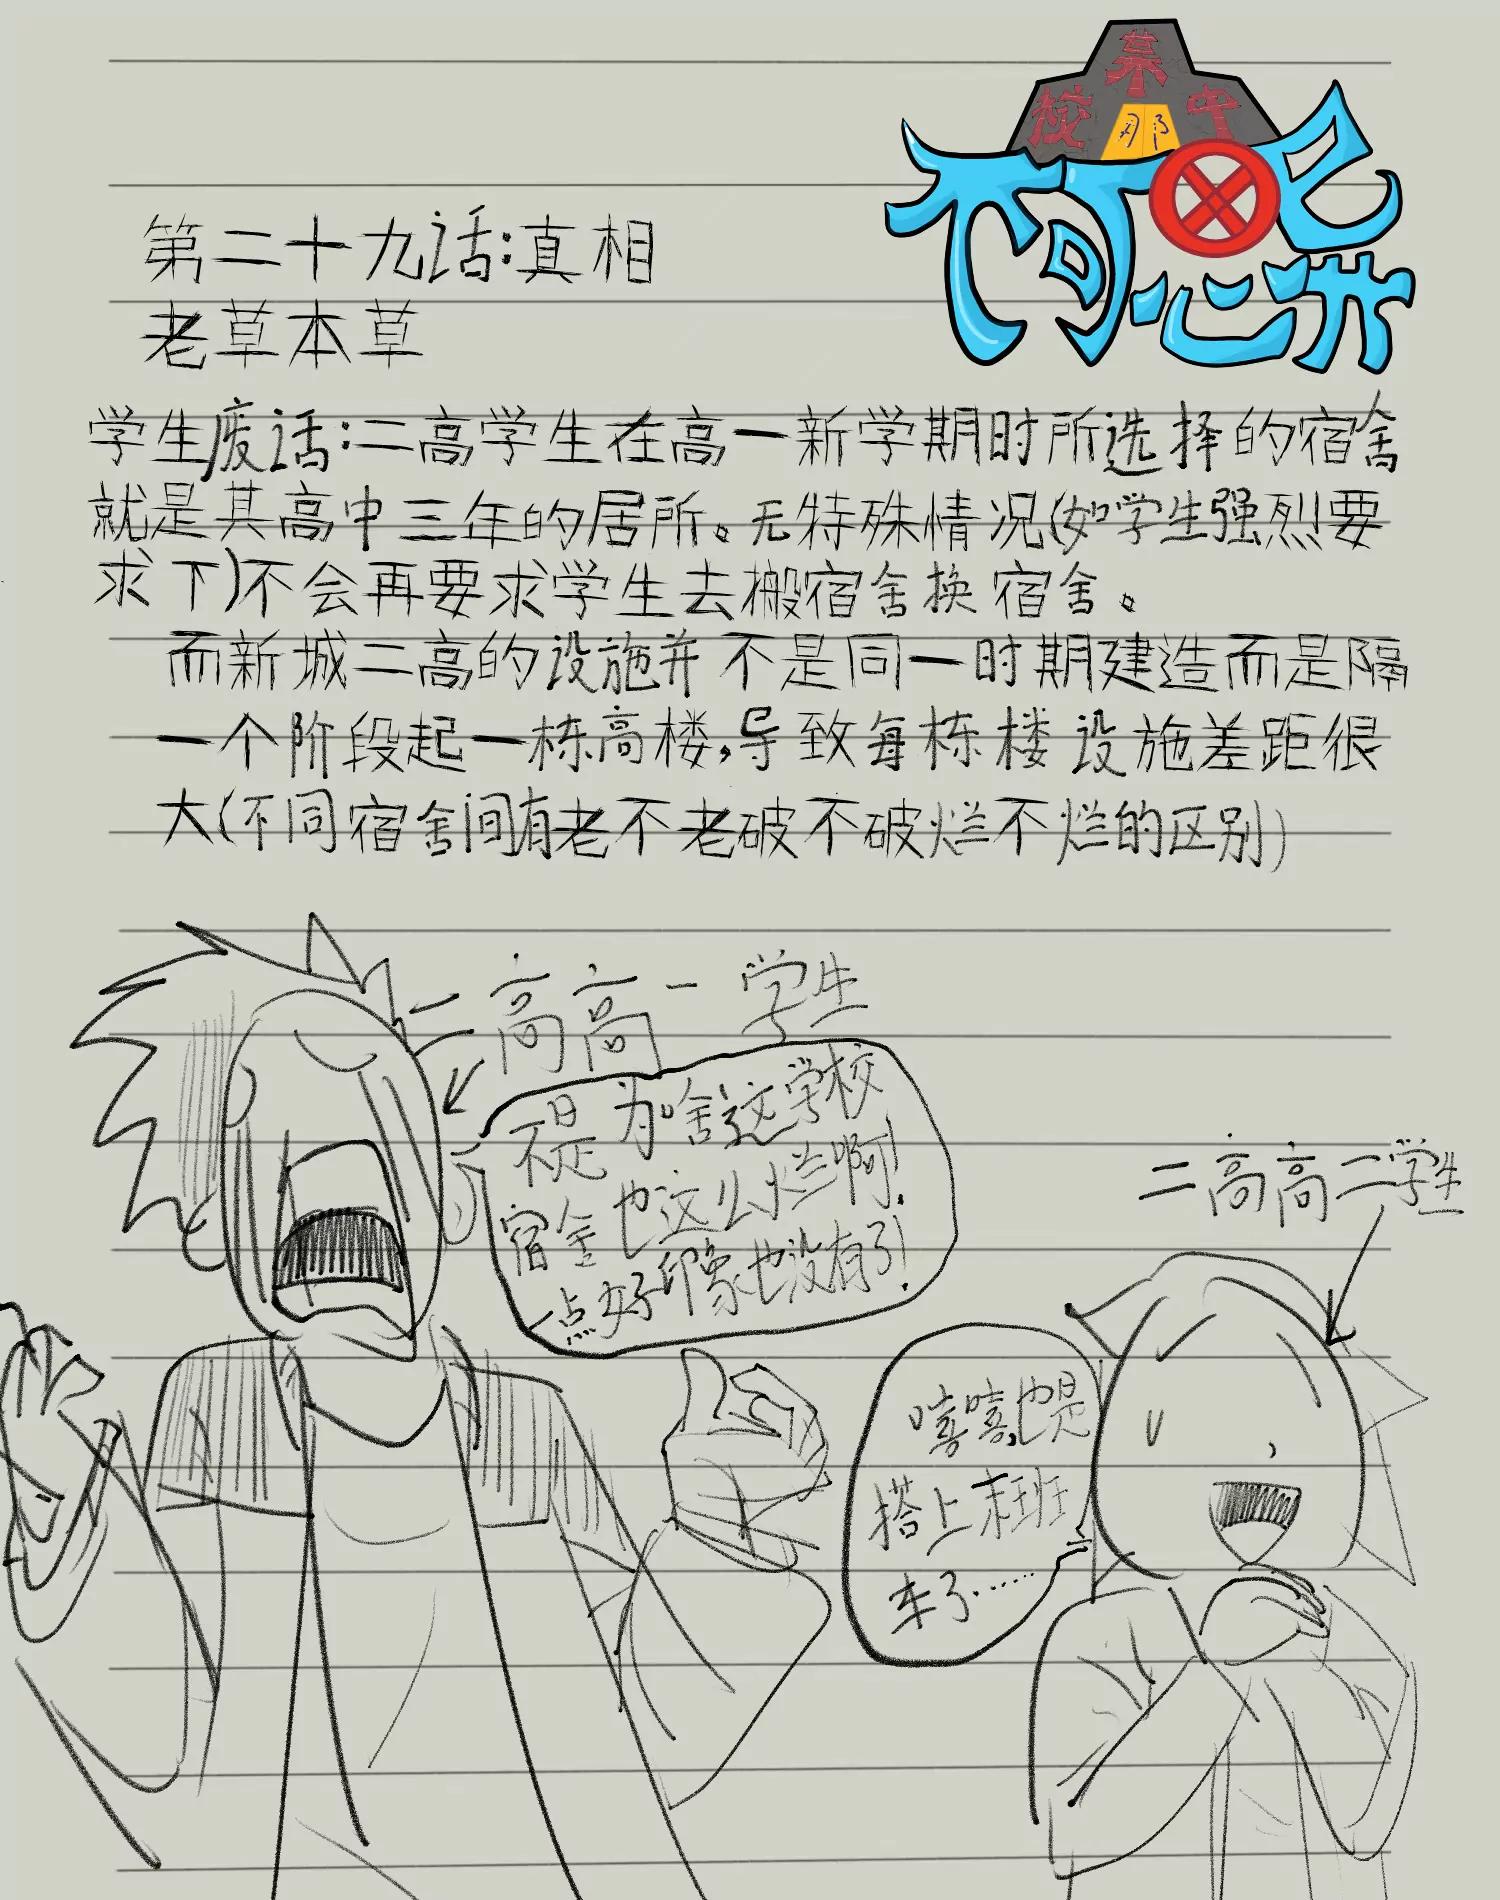 某
校 中
那
不可思异
第二十九话:真相
老草本草
学生废话:二高学生在高一新学期时所选择的宿舍
就是其高中三年的居所。无特殊情况(如学生强烈要
求下)不会再要求学生去搬宿舍换宿舍。
而新城二高的设施并不是同一时期建造而是隔
一个阶段起一栋高楼,导致每栋楼设施差距很
大(不同宿舍间有老不老破不破烂不烂的区别)
二高高一学生
不是为啥这学校
宿舍也这么烂啊!
一点好印象也没有了!
二高高二学生
嘻嘻,也是
搭上末班
车了……